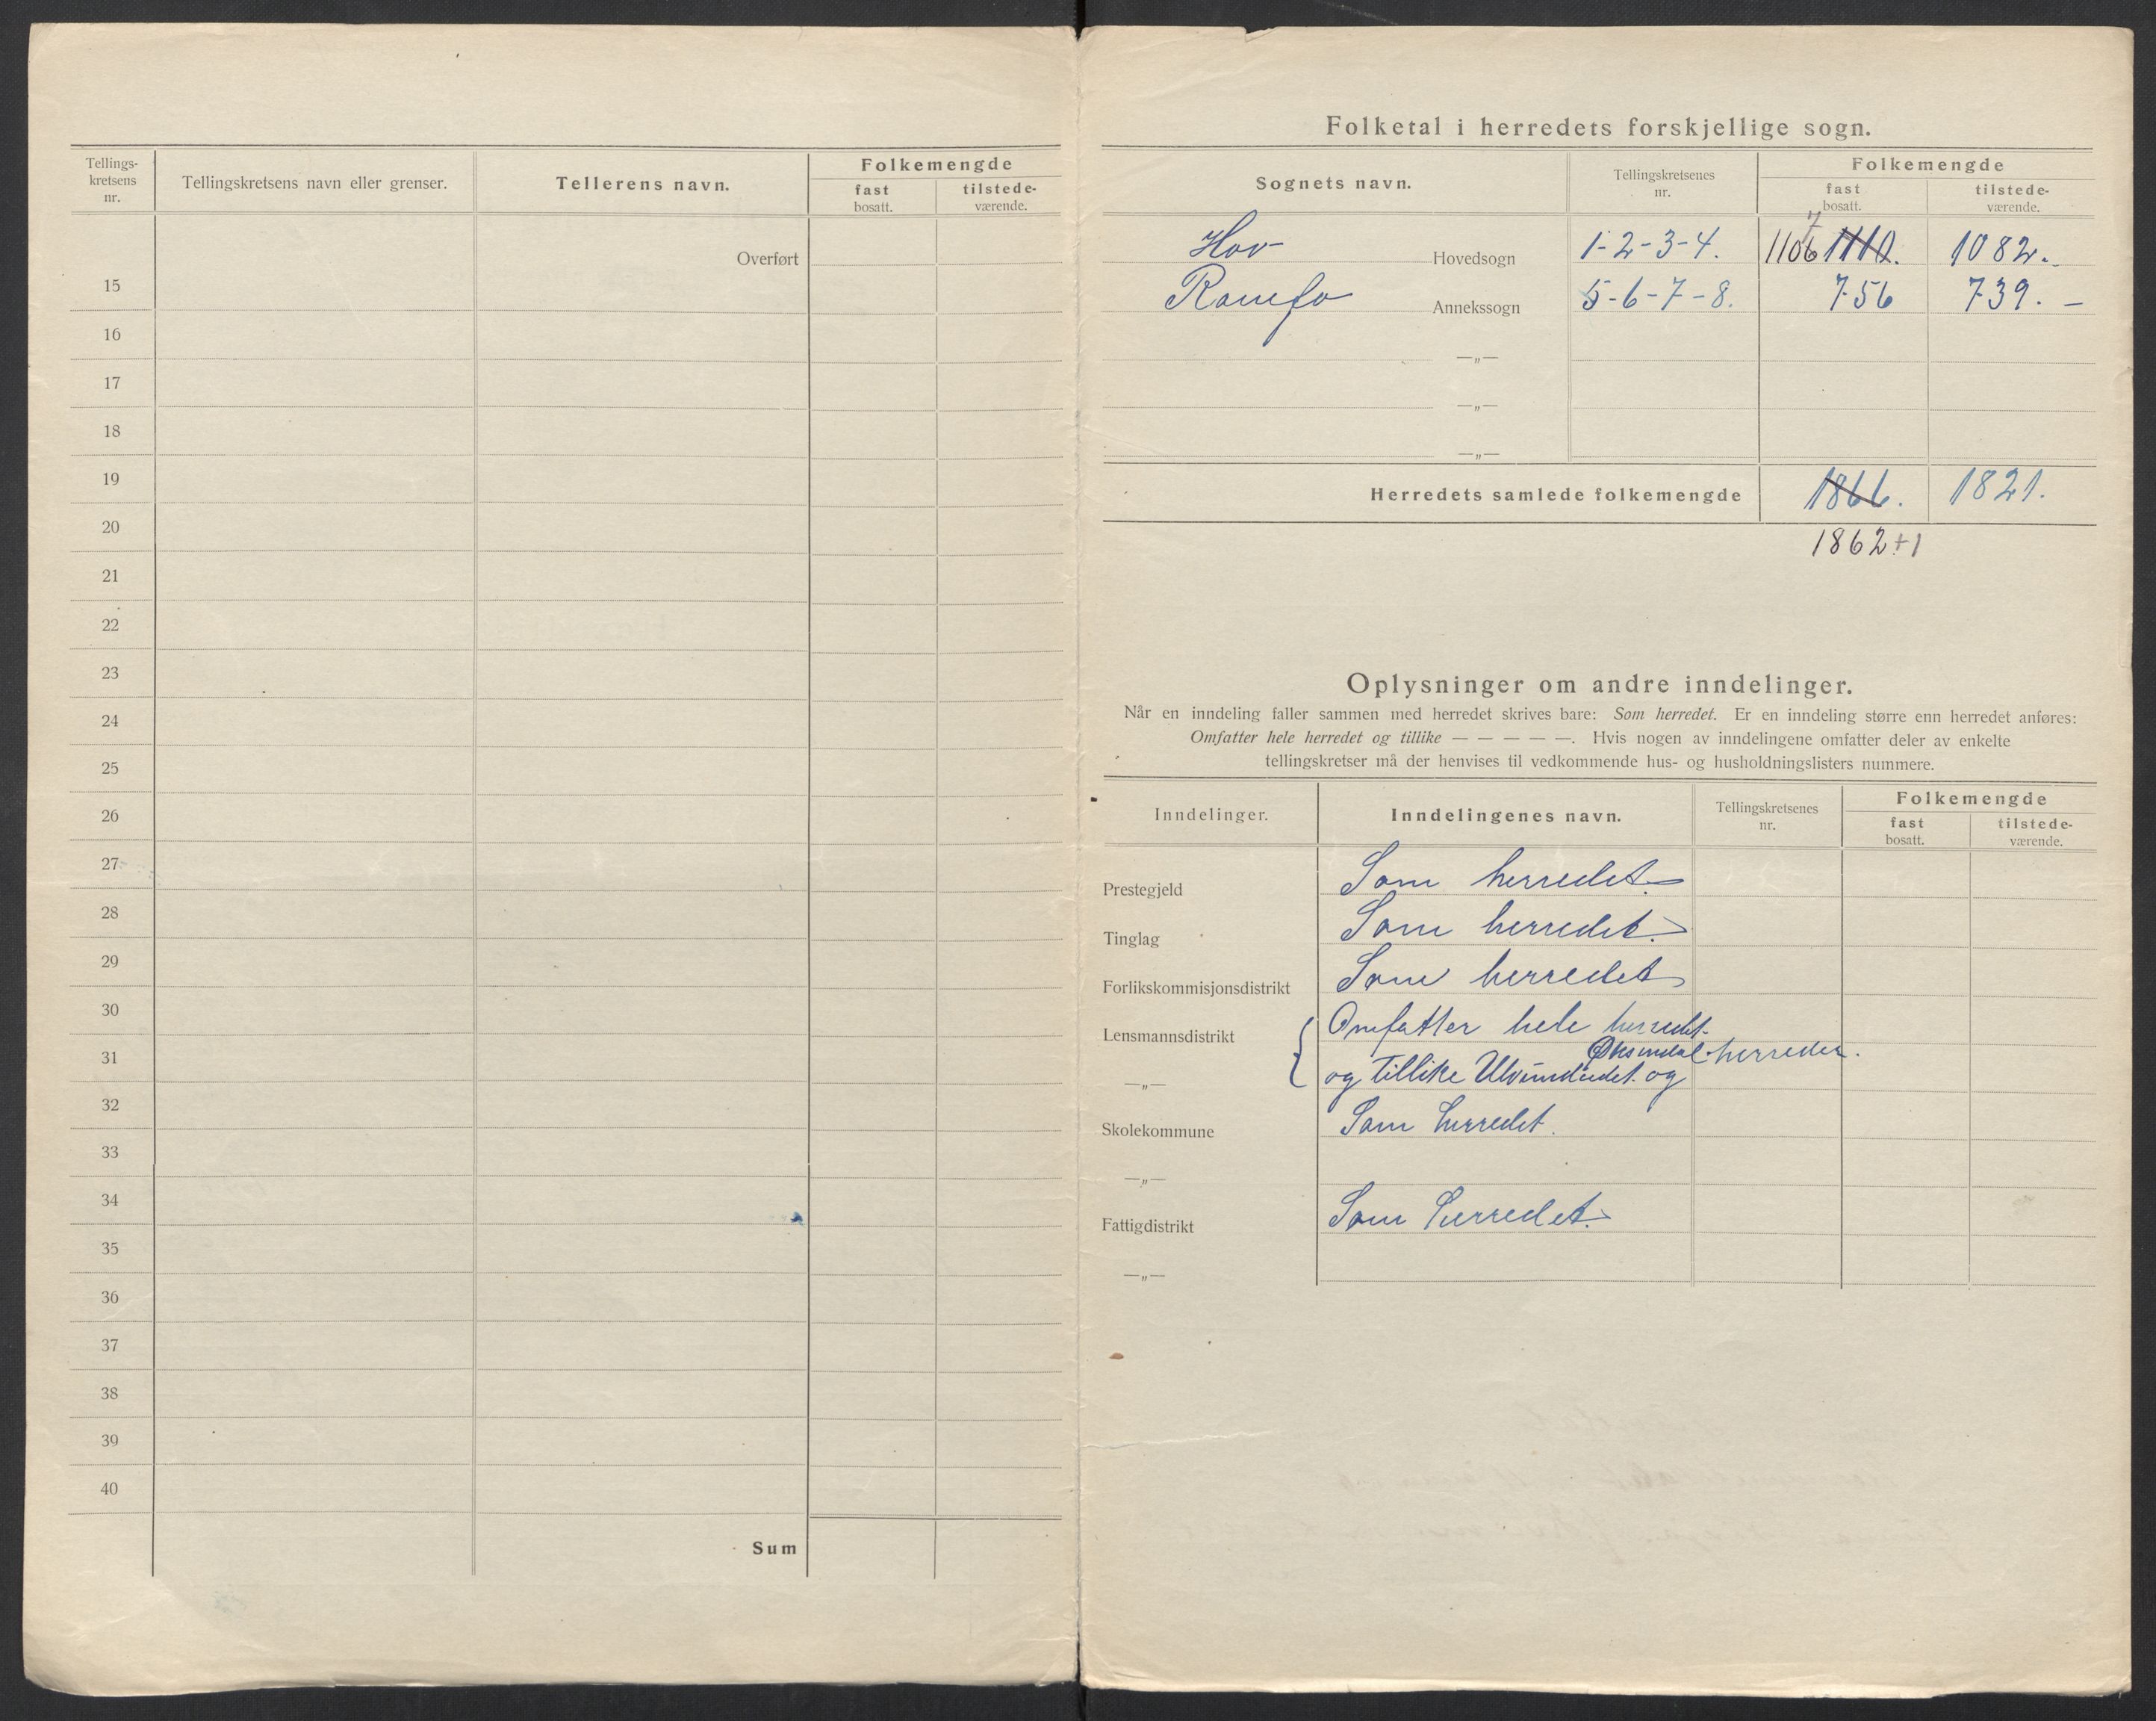 Tellings-
kretsens
nr.
Tellingskretsens navn eller grenser.
Tellerens navn.
Folkemengde
fast
bosatt.
tilstede-
værende.
Overført
15
16
17
18
19
20
21
22
23
24
25
26
27
28
29
30
31
32
33
34
35
36
37
38
39
40
Sum
Folketal i herredets forskjellige sogn.
Sognets navn.
Tellingskretsenes
nr.
Folkemengde
fast
bosatt.
tilstede-
værende.
7
Hov Hovedsogn 1-2-3-4. 1106 1110. 1082.
Romfo Annekssogn 5-6-7-8. 756 739. —
—„—
—„—
—„—
Herredets samlede folkemengde 1866. 1821.
1862+1
Oplysninger om andre inndelinger.
Når en inndeling faller sammen med herredet skrives bare: Som herredet. Er en inndeling større enn herredet anføres:
Omfatter hele herredet og tillike — — — — —. Hvis nogen av inndelingene omfatter deler av enkelte
tellingskretser må der henvises til vedkommende hus- og husholdningslisters nummere.
Inndelinger.
Inndelingenes navn.
Tellingskretsenes
nr.
Folkemengde
fast
bosatt.
tilstede-
værende.
Prestegjeld Som herredet.
Tinglag Som herredet.
Forlikskommisjonsdistrikt Som herredet
Lensmannsdistrikt Omfatter hele herredet
Øksendal herreder.
—„— og tillike Ulvundeidet og
Skolekommune Som herredet.
—„—
Fattigdistrikt Som herredet.
—„—